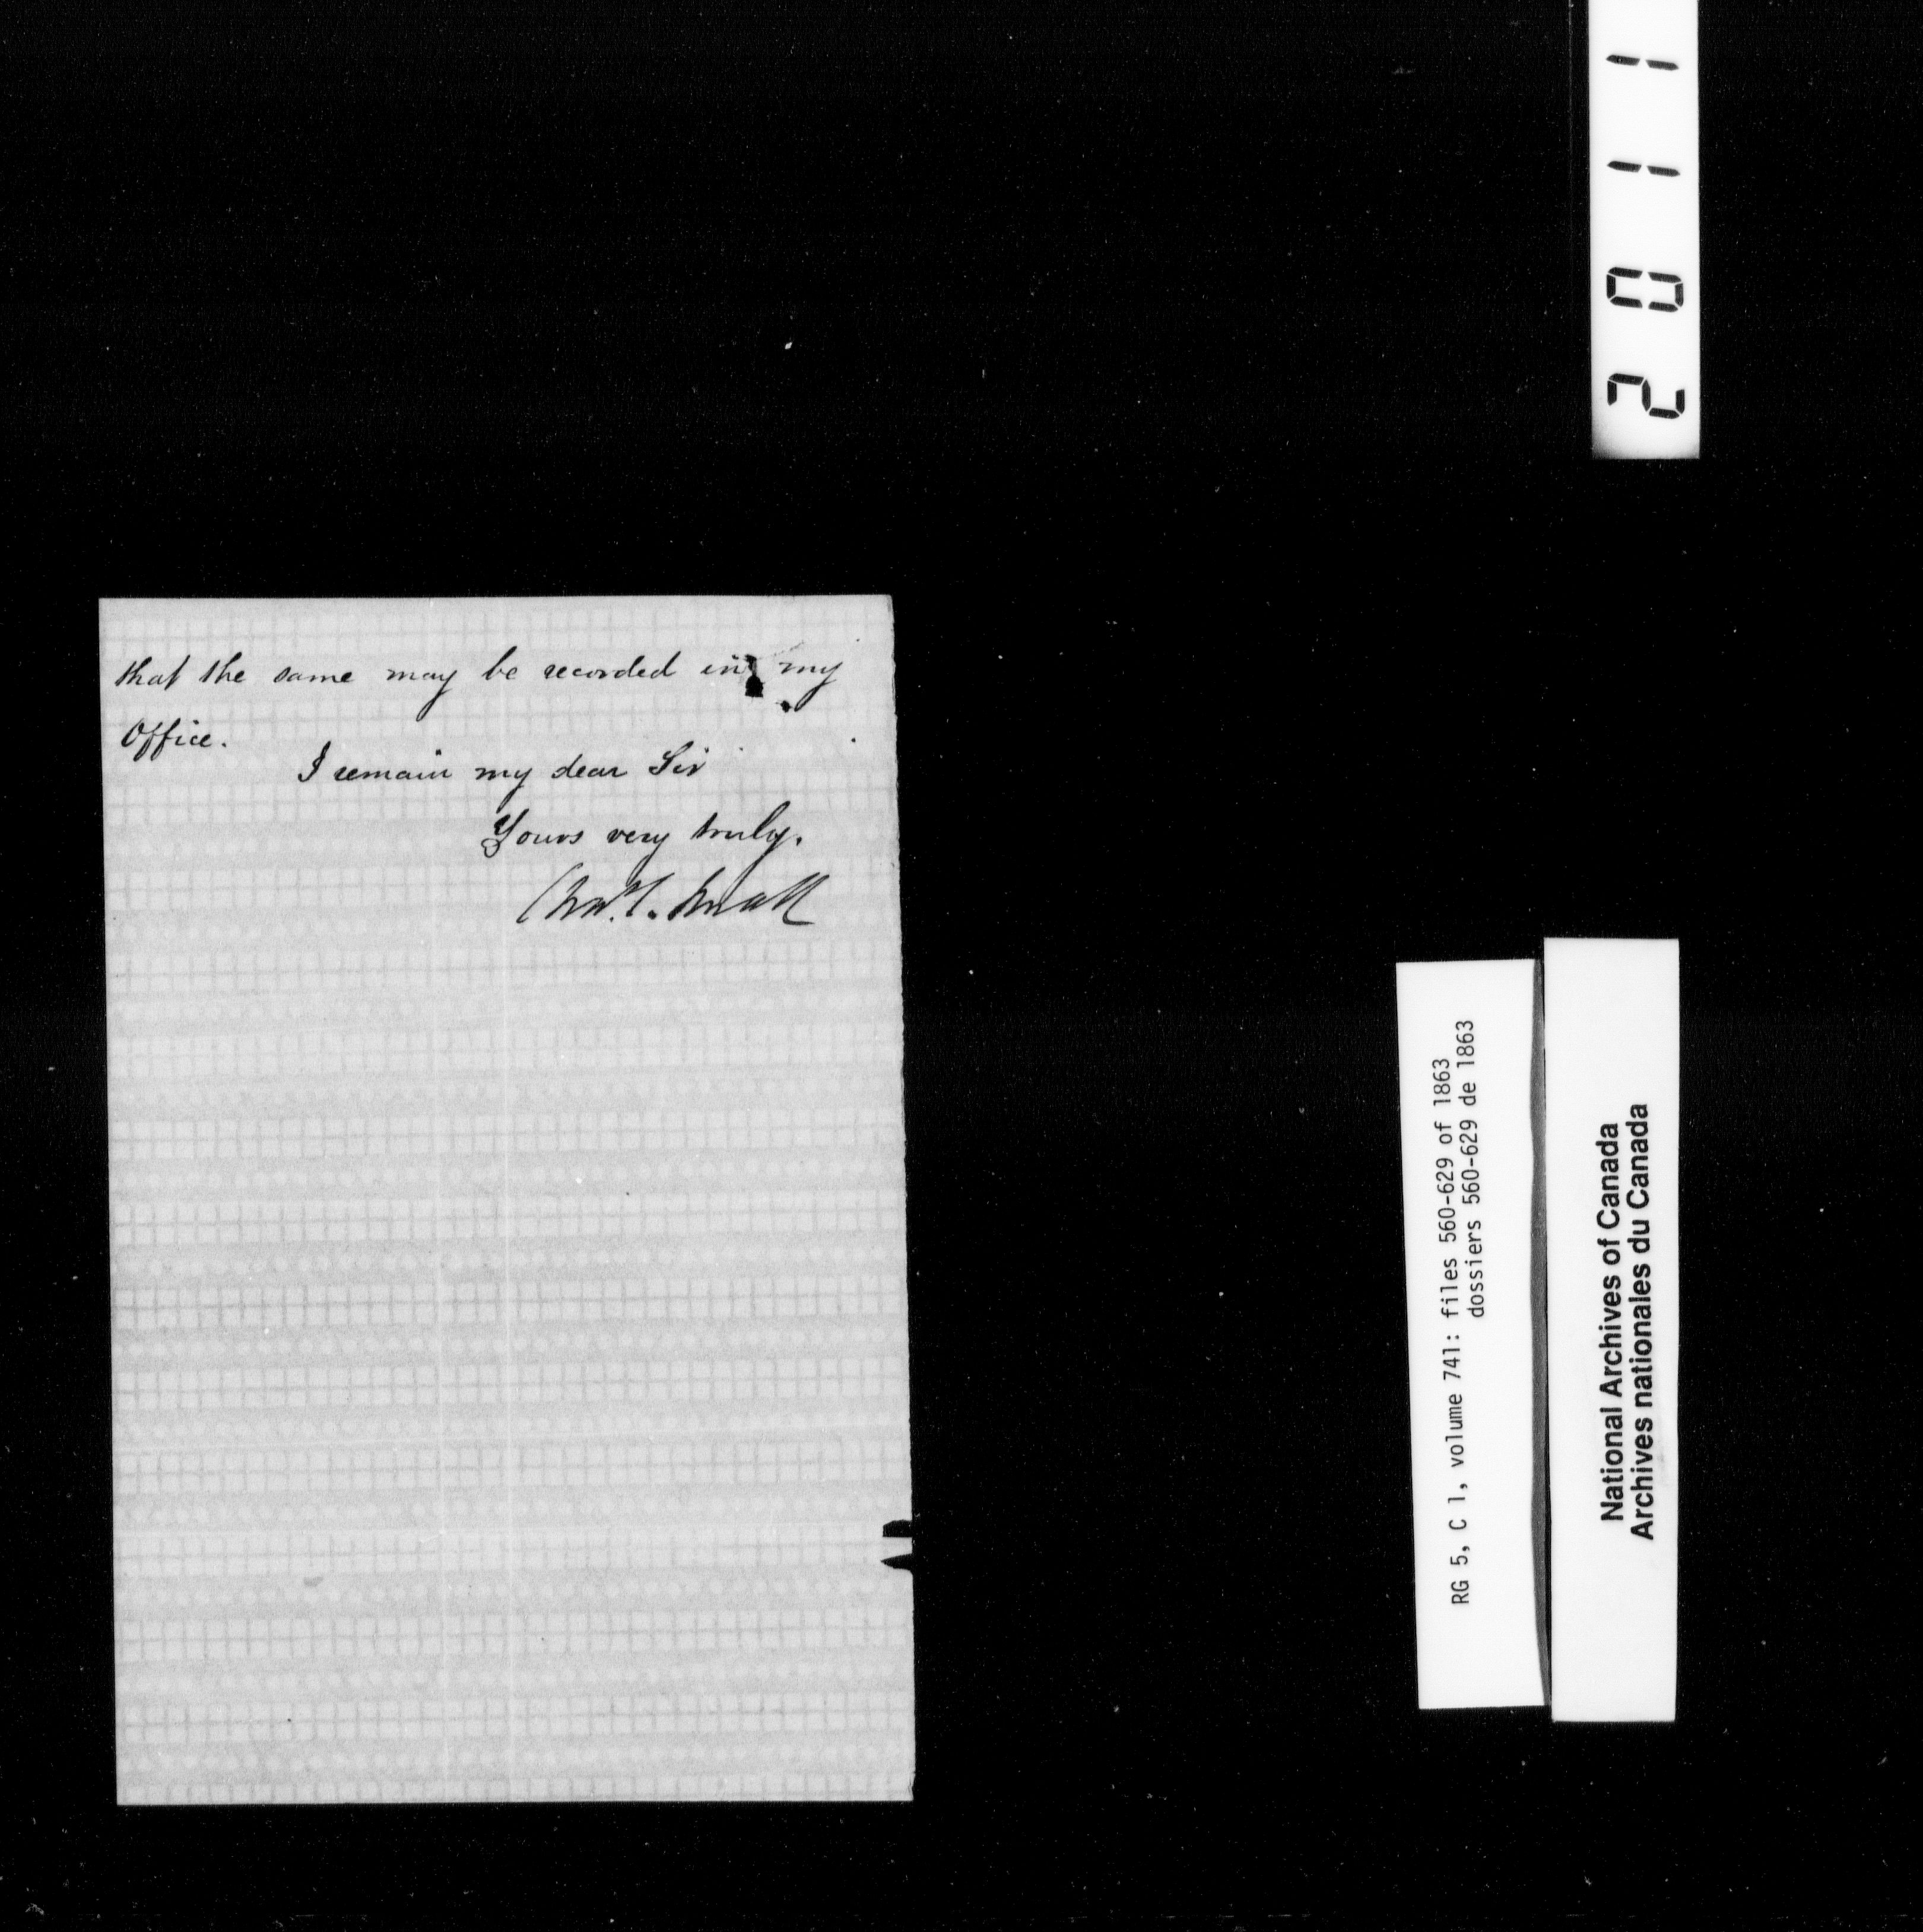 that the same may be recorded in my
Office.
I remain my dear Sir
Yours very truly.
2011
RG 5, C 1, volume 741: files 560-629 of 1863
dossiers 560-629 de 1863
National Archives of Canada
Archives nationales du Canada